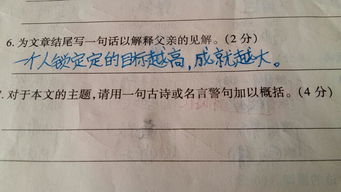 6. 为文章结尾写一句话以解释父亲的见解。(2 分)
一个人锁定定的目标越高,成就越大。
.对于本文的主题,请用一句古诗或名言警句加以概括。(4 分)